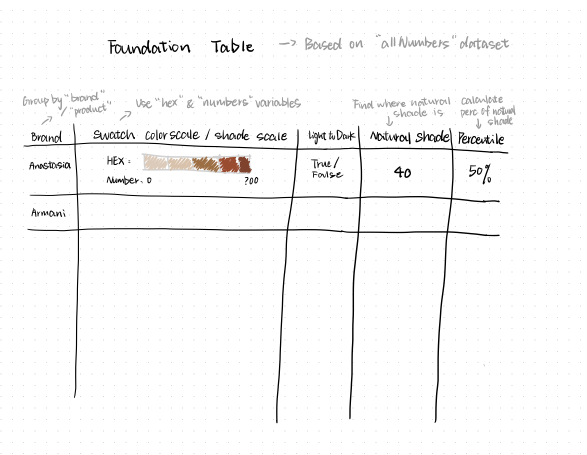 Foundation Table → Based on "allNumbers" dataset
Group by "brand" / "product"
Use "hex" & "numbers" variables
Find where natural shade is
calculate perc of natural shade
Brand
Swatch colorscale / shade scale
Light to Dark
Natural Shade
Percentile
Anastasia
HEX :
Number. 0 700
True / Foulse
40
50%
Armani